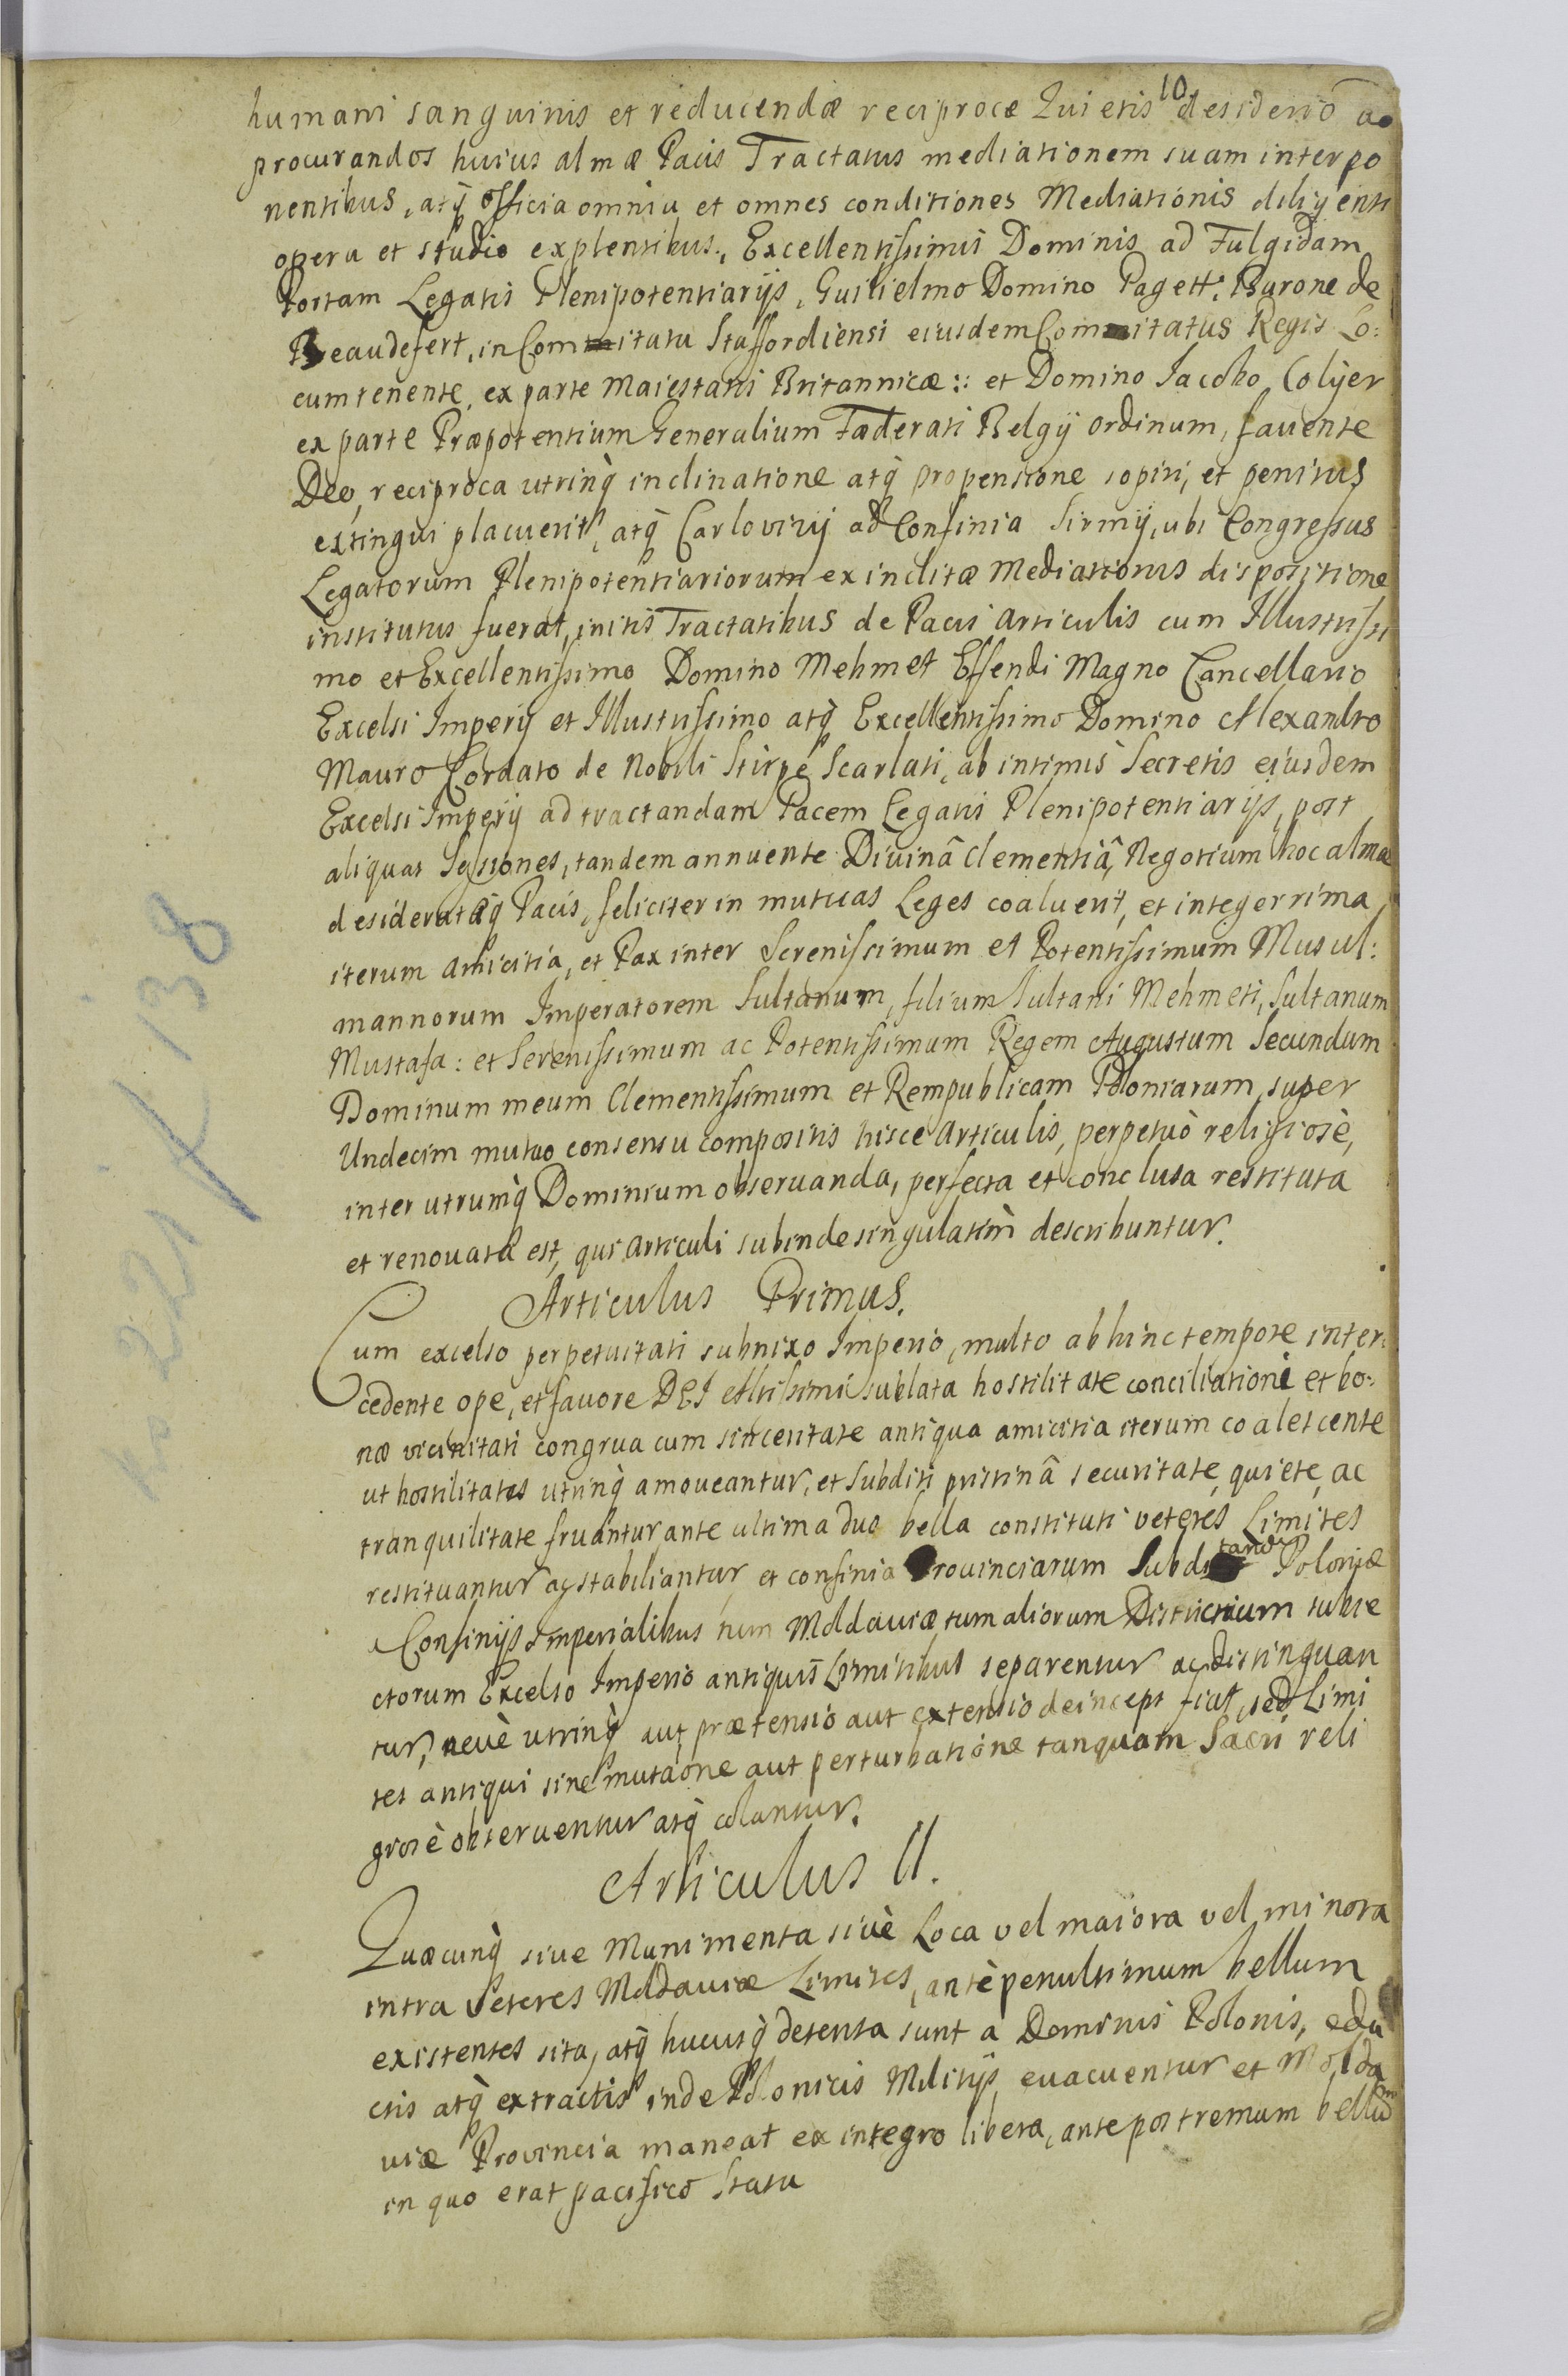 10
humani sanguinis et reducendæ reciprocæ Quietis desiderio ac
procurandos huius almæ Pacis Tractatus mediationem suam interpo
nentibus, atq́ officia omnia et omnes conditiones Mediationis diligenti
opera et studio explentibus, Excellentissimis Dominis ad Fulgidam
Portam Legatis Plenipotentiarijs, Guilielmo Domino Pagett: Barone de
Beaudefert, in Comitatu Staffordiensi eiusdem Comitatus Regis Lo:
cumtenente, ex parte Maiestatis Britannicæ:: et Domino Jacobo Colijer
ex parte Præpotentium Generalium Fæderati Belgij Ordinum, fauente
Deo, reciproca utrinq̀ inclinatione atq̀ propensione sopiri, et penitus
extingui placuerit, atq̀ Carlovizij ad Confinia Sirmij, ubi Congressus
Legatorum Plenipotentiariorum ex inclitæ Mediationis dispositione
institutus fuerat, initis Tractatibus de Pacis Articulis cum Illustrissi
mo et Excellentissimo Domino Mehmet Effendi Magno Cancellario
Excelsi Imperij et Illustrissimo atq̀ Excellentissimo Domino Alexandro
Mauro Cordato de Nobili Stirpe Scarlati, ab intimis Secretis eiusdem
Excelsi Imperij ad tractandam Pacem Legatis Plenipotentiarijs, post
aliquas Sessiones, tandem annuente Diuinâ Clementiâ, Negotium hoc almæ
desideratæq̀ Pacis, feliciter in mutuas Leges coaluerit, et integerrima
iterum Amicitia, et Pax inter Serenissimum et Potentissimum Musul:
mannorum Imperatorem Sultanum, filium Sultani Mehmeti, Sultanum
Mustafa: et Serenissimum ac Potentissimum Regem Augustum Secundum
Dominum meum Clementissimum et Rempublicam Poloniarum, super
Undecim mutuo consensu compositis hisce Articulis, perpetuò religiosè,
inter utrumq̀ Dominium obseruanda, perfecta et conclusa restituta
et renouata est, qui Articuli subinde singulatim describuntur.
Articulus Primus.
Cum excelso perpetuitati subnixo Imperio, multo abhinc tempore inter:
cedente ope, et fauore DEI Altissimi sublata hostilitate conciliationi et bo:
næ vicinitati congrua cum sinceritate antiqua amicitia iterum coalescente
ut hostilitates utrinq̀ amoueantur, et Subditi pristinâ securitate, quiete, ac
tranquilitate fruantur ante ultima duo bella constituti veteres Limites
restituantur ac stabiliantur et confinia Prouinciarum Subditarū Poloniæ
Confinijs Imperialibus tum Moldauiæ tum aliorum Districtuum subie
ctorum Excelso Imperio antiquis Limitibus separentur ac distinguan
tur, neuè utrinq̀ aut prætensio aut extensio deinceps fiat, sed Limi
tes antiqui sine mutaōne aut perturbatione tanquam Sacri reli
giosè obseruentur atq̀ colantur.
Articulus II.
Quæcunq̀ siue Munimenta siuè Loca vel maiora vel minora
intra Veteres Moldauiæ Limites, antè penultimum bellum
existentes sita, atq̀ hucusq̀ detenta sunt a Dominis Polonis, edu
ctis atq̀ extractis inde Polonicis Militijs, euacuentur et Molda
uiæ Provincia maneat ex integro libera, ante postremum bellum
in quo erat pacifico Statu